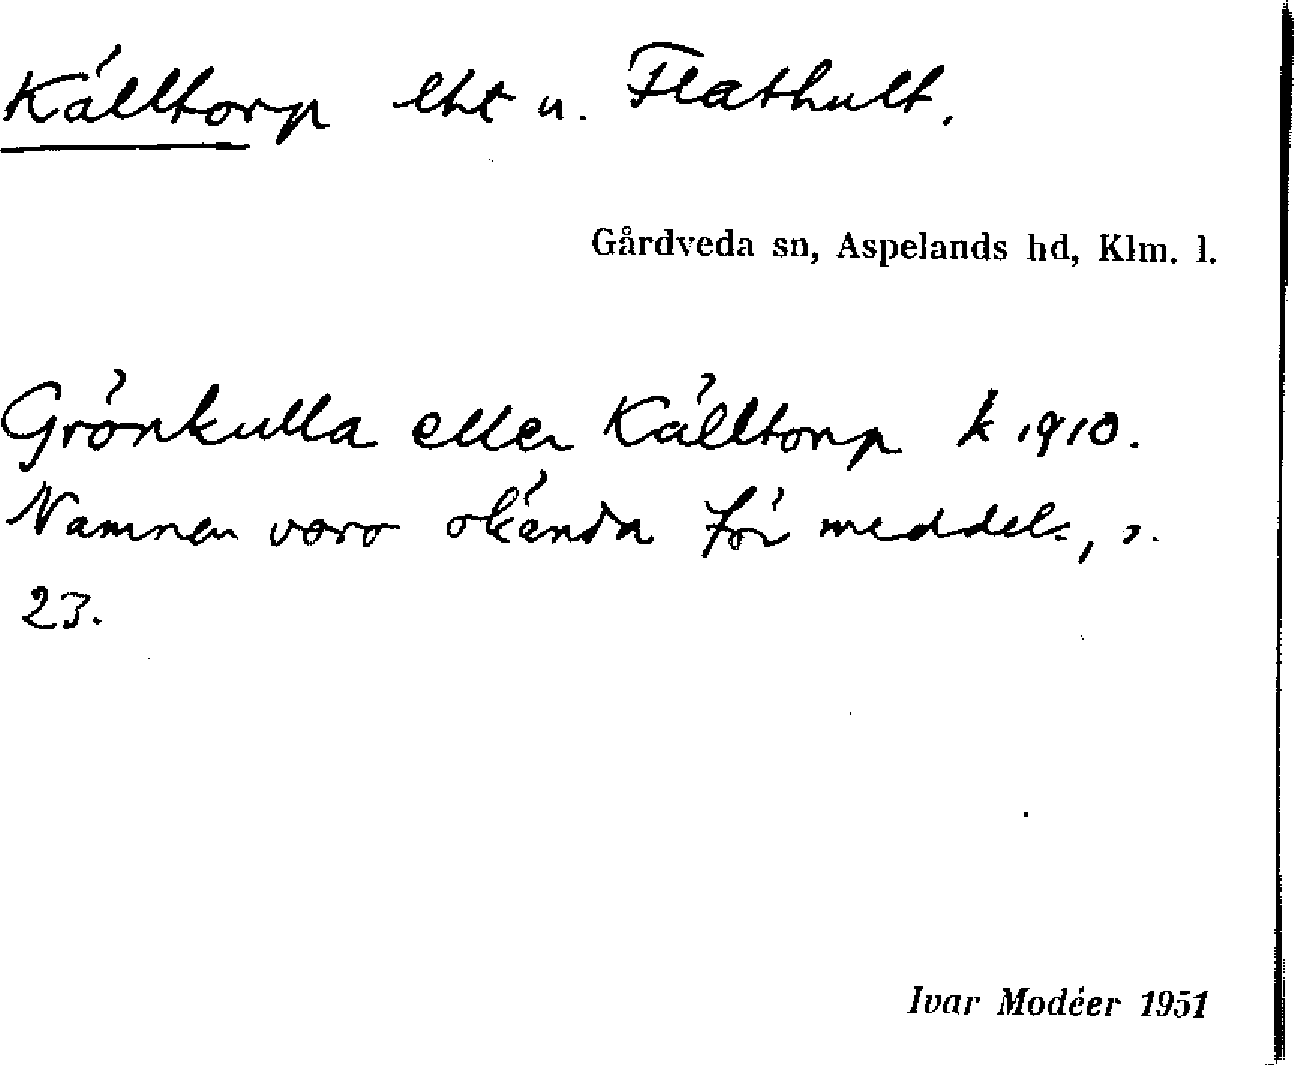 Källtorp lht u. Flathult.
Gårdveda sn, Aspelands hd, Klm. l.
Grönkulla eller Källtorp k 1910.
Namnen voro okända för meddel., s.
23.
Ivar Modéer 1951